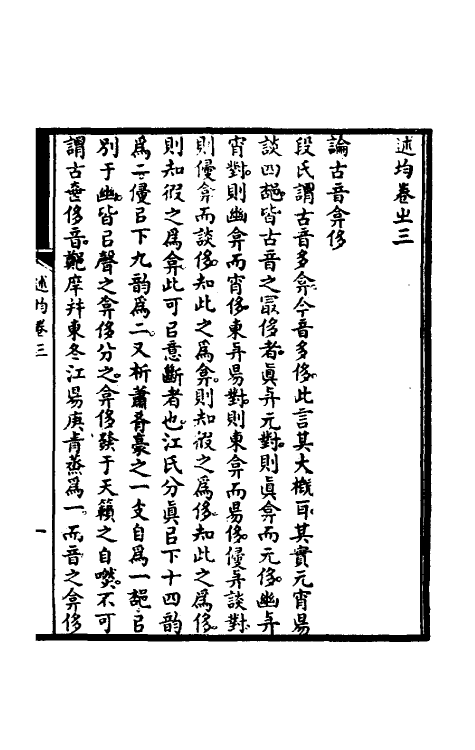 述均卷㞢三
論古音弇侈
段氏謂古音多弇。今音多侈。此言其大槪耳。其實元宵昜
談四䪞。皆古音之冣侈者。眞弁元對。則眞弇而元侈。幽弁
宵對。則幽弇而宵侈。東弁昜對。則東弇而昜侈。㑴弁談對。
則㑴弇而談侈。知此之爲弇。則知彼之爲侈。知此之爲侈。
則知彼之爲弇。此可㠯意斷者也。江氏分眞㠯下十四韵
爲二。㑴㠯下九韵爲二。又析蕭肴豪之一支自爲一䪞。㠯
別于幽。皆㠯聲之弇侈分之。弇侈發于天籟之自嘫。不可
謂古無侈音。鄭庠幷東冬江昜庚靑蒸爲一。而音之弇侈
述均卷三
一